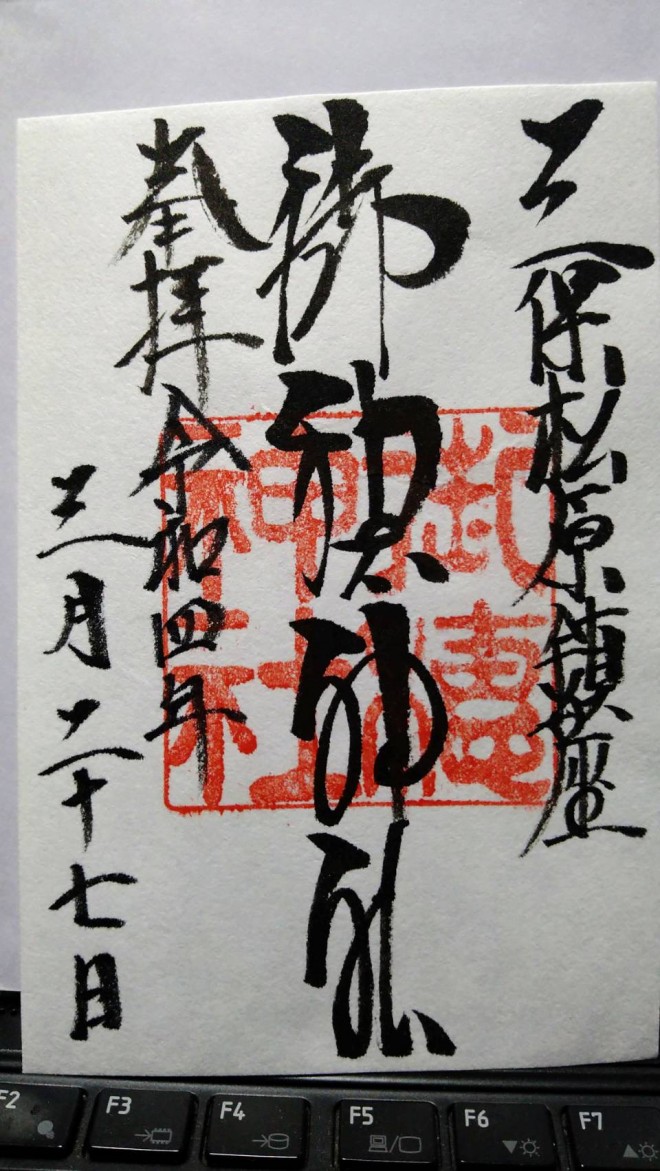 三保松原鎮座
御穂神社
奉拝 令和四年
三月二十七日
御穗
神社
F2 F3 F4 F5 F6 F7